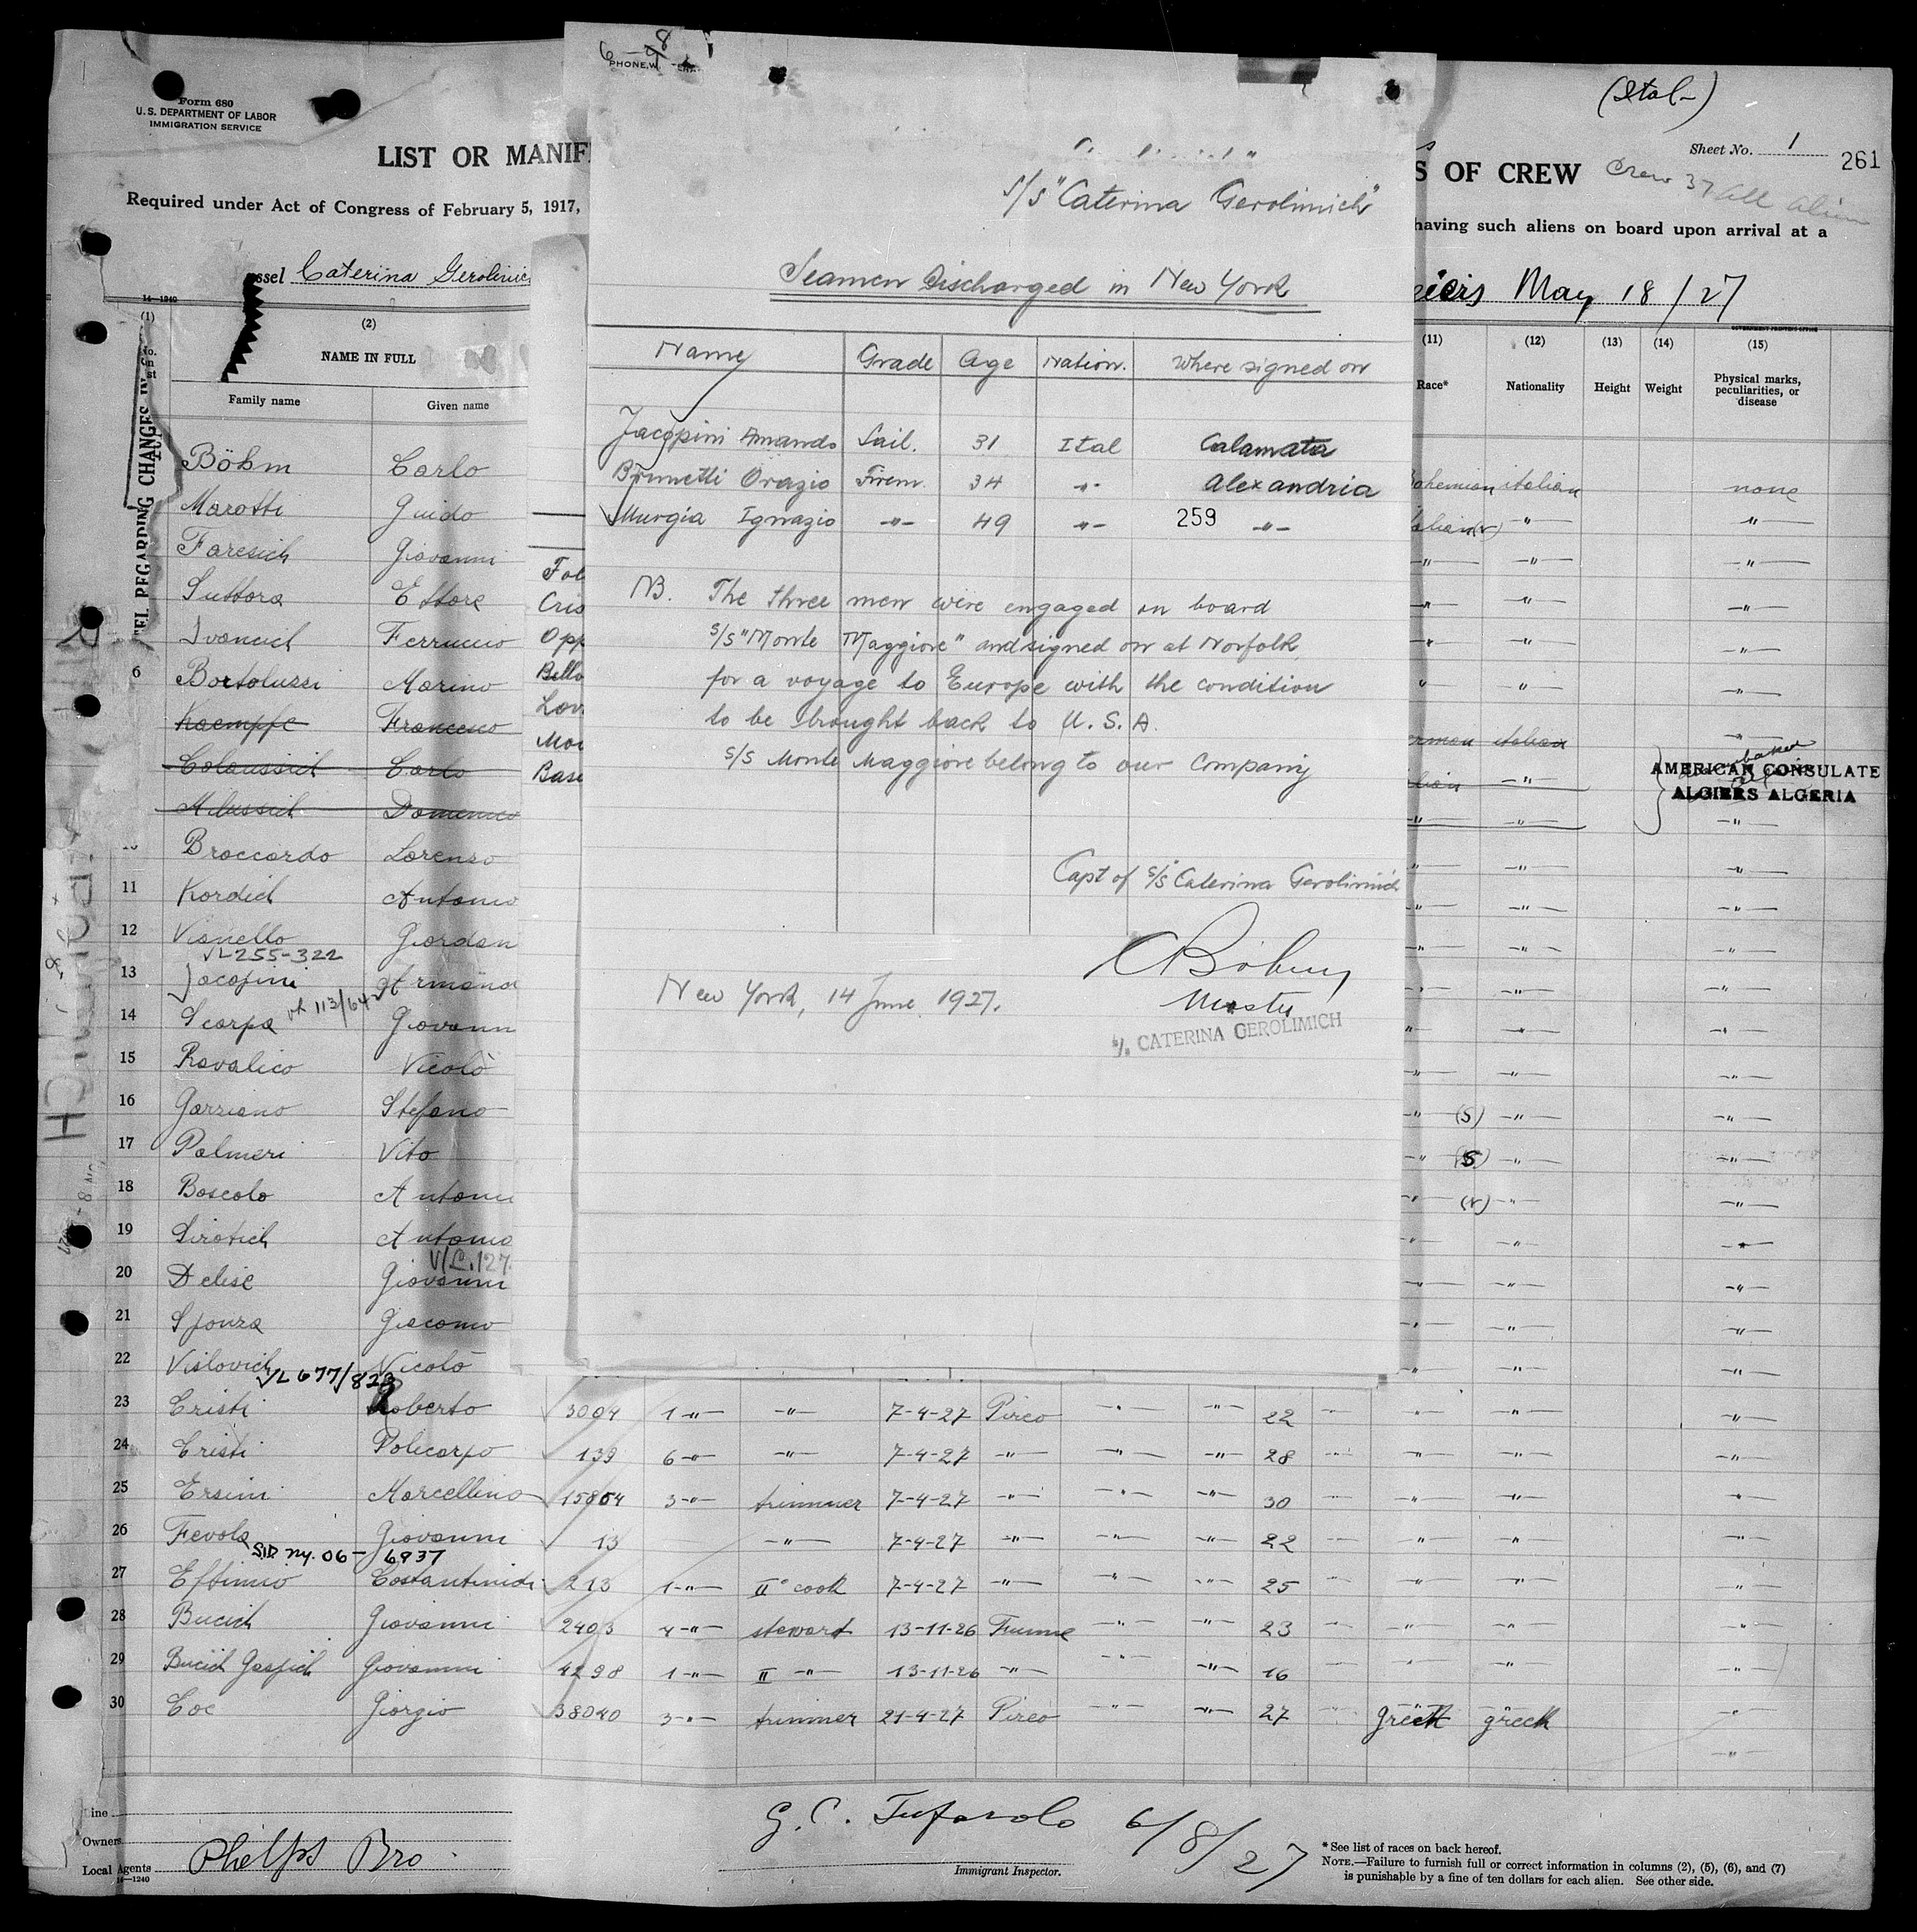 Form 680
U. S. DEPARTMENT OF LABOR
IMMIGRATION SERVICE
LIST OR MANIF
Required under Act of Congress of February 5, 1917,
ssel Caterina Gerolimic
14—1240
(1) (2)
NAME IN FULL
Family name Given name
EL REGARDING CHANGES IN
Böhm Carlo
Marotti Guido
Faresich Giovanni
Suttora Ettore
Ivancich Ferruccio
6 Bortoluzzi Marino
Kaempfe Francesco
Colaussich Carlo
Milussich Domenico
Broccardo Lorenzo
11 Kordich Antonio
12 Vianello Giordan
VL 255-322
13 Jacopini Armand
113/642
14 Scarpa Giovann
15 Ravalico Nicolò
16 Garziano Stefano
17 Palmeri Vito
18 Boscolo Antoni
19 Sirotich Antonio
V/L.127
20 Delise Giovanni
21 Sponza Giacomo
22 Vislovich Nicolò
V/L 677/823
23 Cristi Roberto 3004 1 -"- -"- 7-4-27 Pireo -"- -"- 22 -"- -"- -"- -"-
24 Cristi Policarpo 139 6 -"- -"- 7-4-27 -"- -"- -"- 28 -"- -"- -"- -"-
25 Ersini Marcellino 15804 3 -"- trimmer 7-4-27 -"- -"- -"- 30 -"- -"- -"- -"-
26 Fevola Giovanni 13 -"- 7-4-27 -"- -"- -"- 22 -"- -"- -"- -"-
SID ny. 06-6937
27 Eftimio Costantinidi 213 1 -"- II° cook 7-4-27 -"- -"- -"- 25 -"- -"- -"- -"-
28 Bucich Giovanni 2403 4 -"- steward 13-11-26 Fiume -"- -"- 23 -"- -"- -"- -"-
29 Bucich Gaspich Giovanni 4298 1 -"- II -"- 13-11-26 -"- -"- -"- 16 -"- -"- -"- -"-
30 Coc Giorgio 38040 3 -"- trimmer 21-4-27 Pireo -"- -"- 27 -"- greek greek -"-
Line
Owners
Local Agents Phelps Bro
14—1240
G. C. Tufarolo 6/8/27
Immigrant Inspector.
* See list of races on back hereof.
NOTE.—Failure to furnish full or correct information in columns (2), (5), (6), and (7)
is punishable by a fine of ten dollars for each alien. See other side.
Cris
Opp
Bello
Lov
Base
PHONE,
S/S "Caterina Gerolimich"
Seamen Discharged in New York
Name Grade Age Nation. Where signed on
Jacopini Amando Sail. 31 Ital Calamata
Brunetti Orazio Firem. 34 -"- Alexandria
Murgia Ignazio -"- 49 -"- 259 -"-
NB. The three men were engaged on board
s/s "Monte Maggiore" and signed on at Norfolk,
for a voyage to Europe with the condition
to be brought back to U. S. A.
s/s Monte Maggiore belong to our Company
Capt of s/s Caterina Gerolimich
CBöhm
Master
New York, 14 June 1927.
S/S. CATERINA GEROLIMICH
(Ital-)
Sheet No. 1
261
S OF CREW
Crew 37 all alien
having such aliens on board upon arrival at a
May 18/27
GOVERNMENT PRINTING OFFICE
(11) (12) (13) (14) (15)
Race* Nationality Height Weight Physical marks,
peculiarities, or
disease
ohemian italian none
italian
AMERICAN CONSULATE
ALGIERS ALGERIA
(S)
(S)